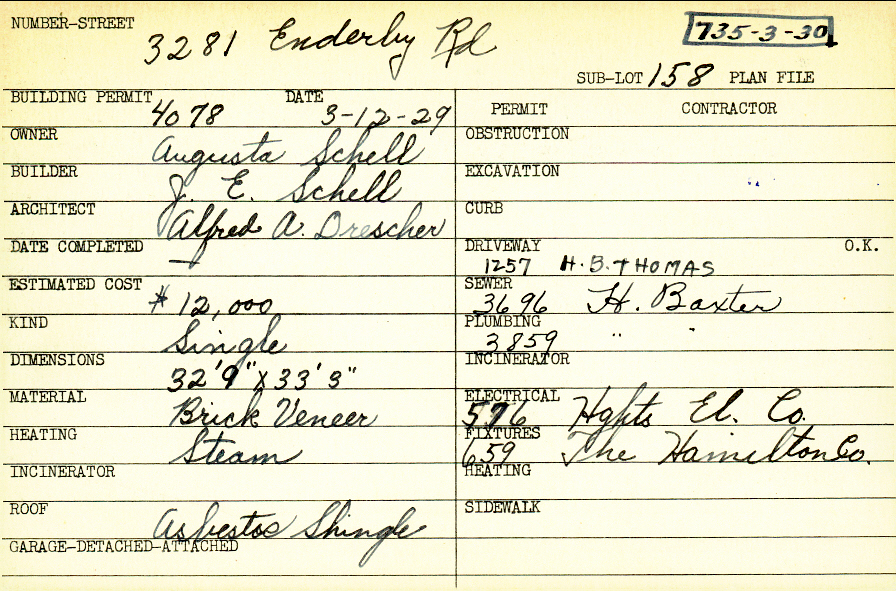 NUMBER-STREET 3281 Enderby Rd 735-3-30
SUB-LOT 158 PLAN FILE
BUILDING PERMIT 4078 DATE 3-12-29
OWNER Augusta Schell
BUILDER J. E. Schell
ARCHITECT Alfred A. Drescher
DATE COMPLETED —
ESTIMATED COST $ 12,000
KIND Single
DIMENSIONS 32'9" X 33'3"
MATERIAL Brick Veneer
HEATING Steam
INCINERATOR
ROOF Asbestos Shingle
GARAGE-DETACHED-ATTACHED
PERMIT CONTRACTOR
OBSTRUCTION
EXCAVATION
CURB
DRIVEWAY O.K.
1257 H.B. THOMAS
SEWER
3696 H. Baxter
PLUMBING
3859 " "
INCINERATOR
ELECTRICAL
576 Hghts El. Co.
FIXTURES
659 The Hamilton Co.
HEATING
SIDEWALK